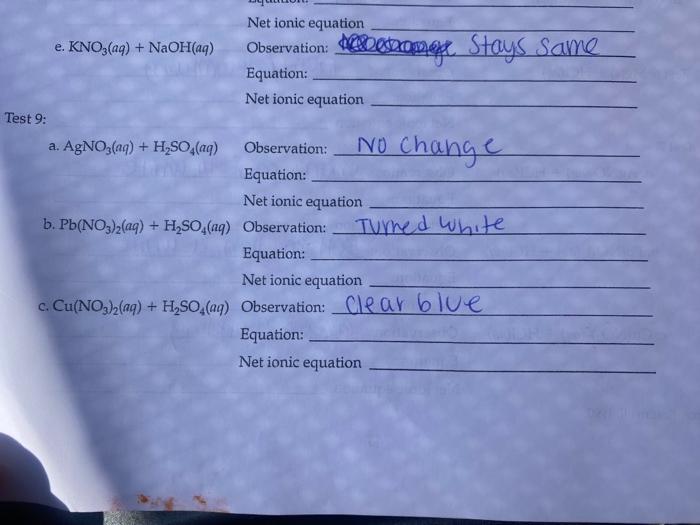 Net ionic equation
e. KNO₃(aq) + NaOH(aq) Observation: Stays same
Equation:
Net ionic equation
Test 9:
a. AgNO₃(aq) + H₂SO₄(aq) Observation: No change
Equation:
Net ionic equation
b. Pb(NO₃)₂(aq) + H₂SO₄(aq) Observation: Turned white
Equation:
Net ionic equation
c. Cu(NO₃)₂(aq) + H₂SO₄(aq) Observation: Clear blue
Equation:
Net ionic equation